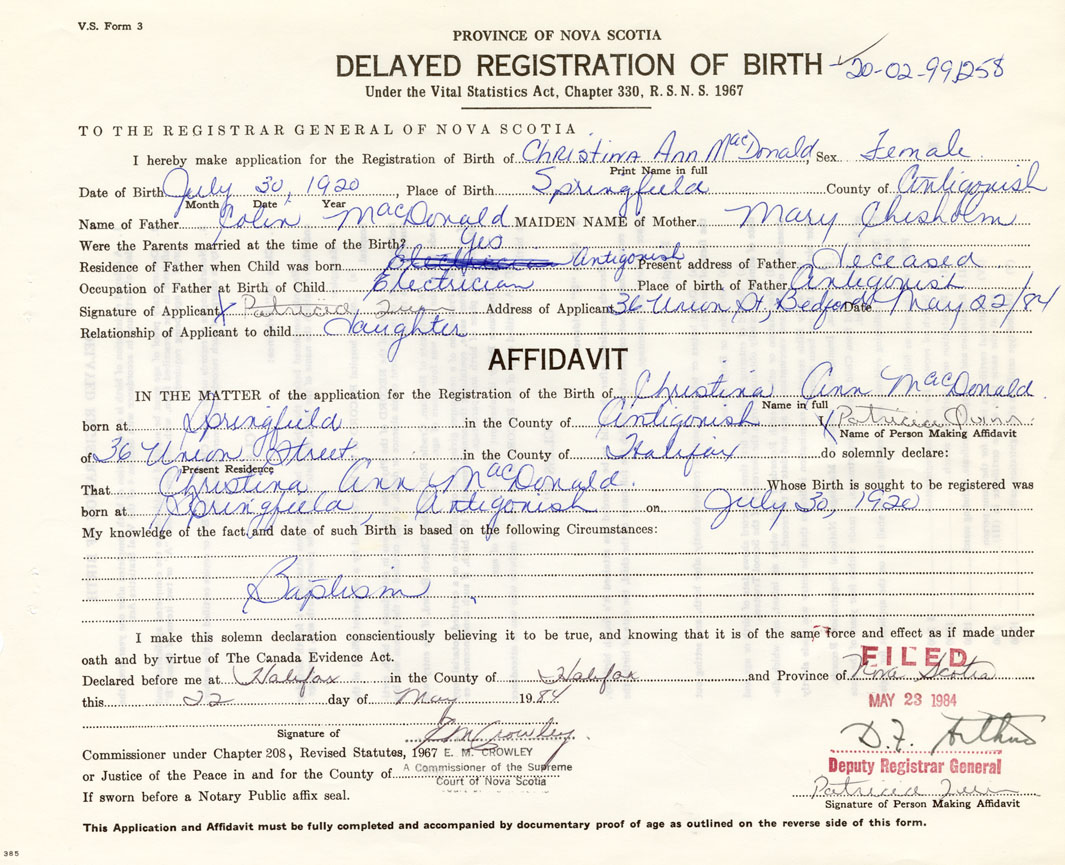 V.S. Form 3
PROVINCE OF NOVA SCOTIA
DELAYED REGISTRATION OF BIRTH 20-02-991258
Under the Vital Statistics Act, Chapter 330, R.S.N.S. 1967
TO THE REGISTRAR GENERAL OF NOVA SCOTIA
I hereby make application for the Registration of Birth of Christina Ann MacDonald, Sex Female
Print Name in full
Date of Birth July 30, 1920, Place of Birth Springfield County of Antigonish
Month Date Year
Name of Father Colin MacDonald MAIDEN NAME of Mother Mary Chisholm
Were the Parents married at the time of the Birth? Yes
Residence of Father when Child was born Antigonish Present address of Father Deceased
Occupation of Father at Birth of Child Electrician Place of birth of Father Antigonish
Signature of Applicant X Patricia Quinn Address of Applicant 36 Union St, Bedford Date May 22/84
Relationship of Applicant to child Daughter
AFFIDAVIT
IN THE MATTER of the application for the Registration of the Birth of Christina Ann MacDonald
Name in full
born at Springfield in the County of Antigonish I, X Patricia Quinn
Name of Person Making Affidavit
of 36 Union Street in the County of Halifax do solemnly declare:
Present Residence
That Christina Ann MacDonald. Whose Birth is sought to be registered was
born at Springfield, Antigonish on July 30, 1920
My knowledge of the fact and date of such Birth is based on the following Circumstances:
Baptism
I make this solemn declaration conscientiously believing it to be true, and knowing that it is of the same force and effect as if made under
oath and by virtue of The Canada Evidence Act.
FILED
Declared before me at Halifax in the County of Halifax and Province of Nova Scotia
this 22 day of May 1984
MAY 23 1984
Signature of E M Crowley
D.F. Arthur
Commissioner under Chapter 208, Revised Statutes, 1967 E. M. CROWLEY
A Commissioner of the Supreme
Deputy Registrar General
or Justice of the Peace in and for the County of
Court of Nova Scotia
Patricia Quinn
If sworn before a Notary Public affix seal.
Signature of Person Making Affidavit
This Application and Affidavit must be fully completed and accompanied by documentary proof of age as outlined on the reverse side of this form.
385